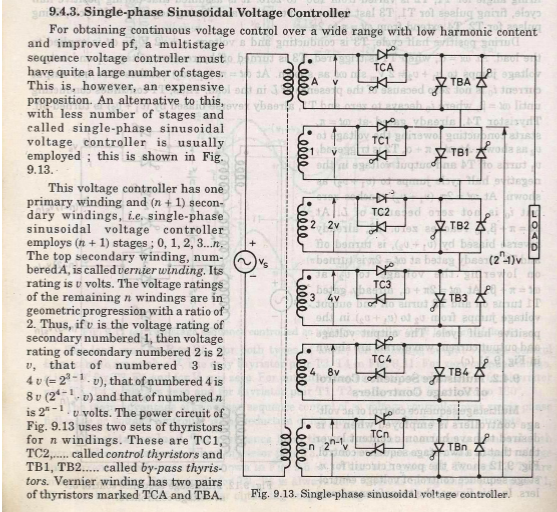 9.4.3. Single-phase Sinusoidal Voltage Controller
For obtaining continuous voltage control over a wide range with low harmonic content
and improved pf, a multistage
sequence voltage controller must
have quite a large number of stages.
This is, however, an expensive
proposition. An alternative to this,
with less number of stages and
called single-phase sinusoidal
voltage controller is usually
employed ; this is shown in Fig.
9.13.
This voltage controller has one
primary winding and (n + 1) secon-
dary windings, i.e. single-phase
sinusoidal voltage controller
employs (n + 1) stages ; 0, 1, 2, 3...n.
The top secondary winding, num-
bered A, is called vernier winding. Its
rating is v volts. The voltage ratings
of the remaining n windings are in
geometric progression with a ratio of
2. Thus, if v is the voltage rating of
secondary numbered 1, then voltage
rating of secondary numbered 2 is 2
v, that of numbered 3 is
4 v (= 2³⁻¹ · v), that of numbered 4 is
8 v (2⁴⁻¹ · v) and that of numbered n
is 2ⁿ⁻¹ · v volts. The power circuit of
Fig. 9.13 uses two sets of thyristors
for n windings. These are TC1,
TC2,..... called control thyristors and
TB1, TB2..... called by-pass thyris-
tors. Vernier winding has two pairs
of thyristors marked TCA and TBA.
A v TCA TBA
1 v TC1 TB1
2 2v TC2 TB2
+ vs −
LOAD
(2ⁿ-1)v
3 4v TC3 TB3
4 8v TC4 TB4
n 2ⁿ⁻¹v TCn TBn
Fig. 9.13. Single-phase sinusoidal voltage controller.